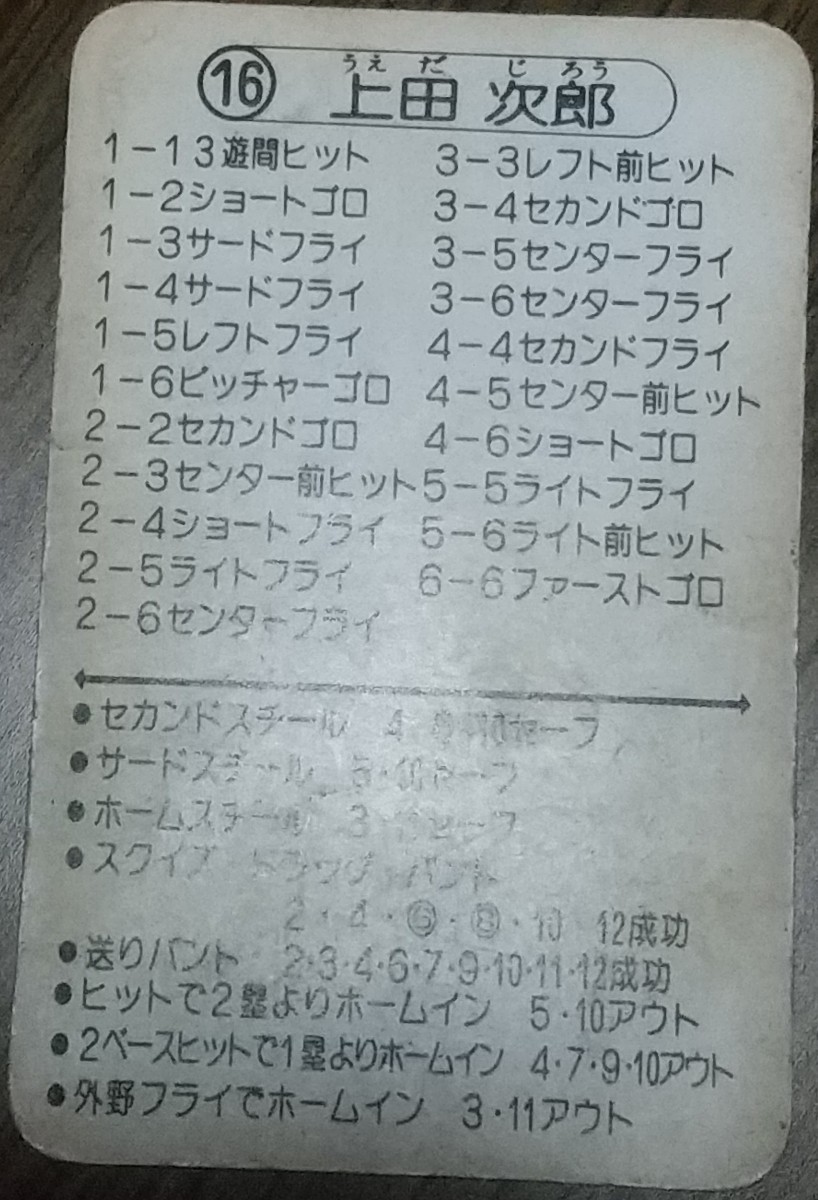 ⑯ 上田 次郎
うえ だ じ ろう
1-1 3遊間ヒット
1-2ショートゴロ
1-3サードフライ
1-4サードフライ
1-5レフトフライ
1-6ピッチャーゴロ
2-2セカンドゴロ
2-3センター前ヒット
2-4ショートフライ
2-5ライトフライ
2-6センターフライ
3-3レフト前ヒット
3-4セカンドゴロ
3-5センターフライ
3-6センターフライ
4-4セカンドフライ
4-5センター前ヒット
4-6ショートゴロ
5-5ライトフライ
5-6ライト前ヒット
6-6ファーストゴロ
●セカンドスチール 4・ セーフ
●サードスチール セーフ
●ホームスチール 3・ セーフ
●スクイズ ドラッグ バント
2・4・⑥・⑧・10 12成功
●送りバント 2・3・4・6・7・9・10・11・12成功
●ヒットで2塁よりホームイン 5・10アウト
●2ベースヒットで1塁よりホームイン 4・7・9・10アウト
●外野フライでホームイン 3・11アウト